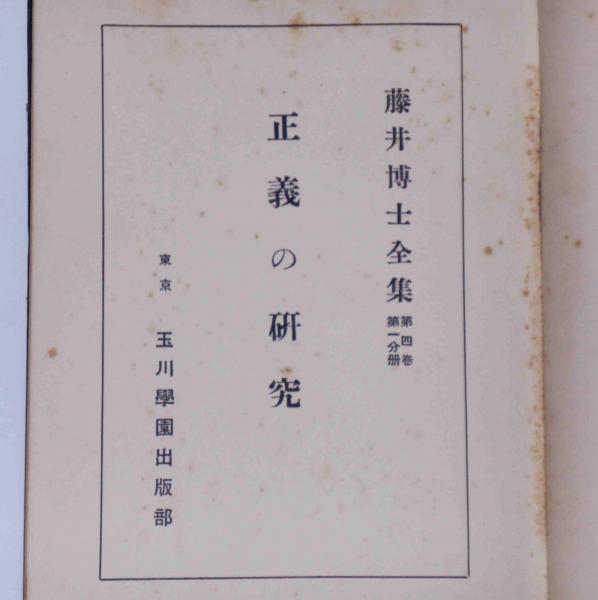 藤井博士全集
第四卷
第一分册
正義の研究
東京
玉川學園出版部